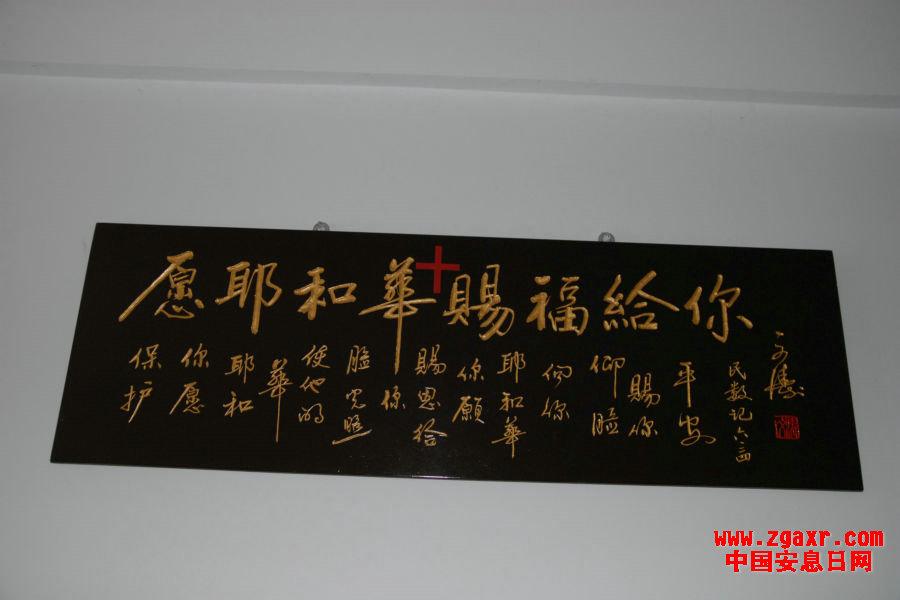 愿耶和華賜福給你
保护
你愿
耶和
華
使他的
脸光照
你
賜恩给
你願
耶和華
向你
仰脸
賜你
平安
民数记六
www.zgaxr.com
中国安息日网